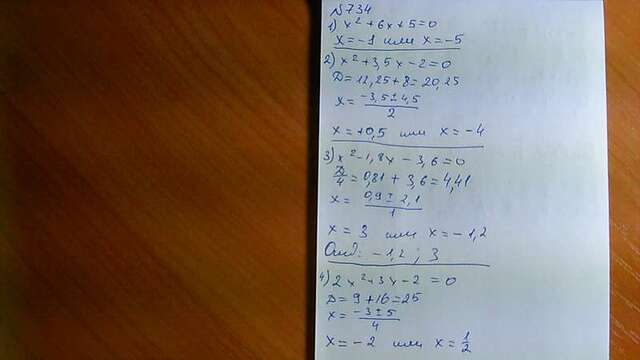 №734
1) x² + 6x + 5 = 0
x = -1 или x = -5
2) x² + 3,5x - 2 = 0
D = 12,25 + 8 = 20,25
x = (-3,5 ± 4,5)/2
x = +0,5 или x = -4
3) x² - 1,8x - 3,6 = 0
D/4 = 0,81 + 3,6 = 4,41
x = (0,9 ± 2,1)/1
x = 3 или x = -1,2
Ответ: -1,2 ; 3
4) 2x² + 3x - 2 = 0
D = 9 + 16 = 25
x = (-3 ± 5)/4
x = -2 или x = 1/2